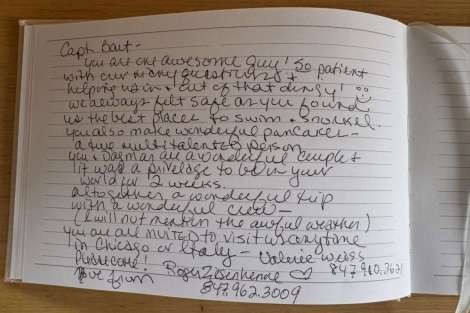 Capt. Bart -
You are one awesome guy! So patient
with our many questions +
helping us in + out of that dingy!
We always felt safe as you found
us the best places to swim + snorkel.
You also make wonderful pancakes -
a true multitalented person.
You + Dagmar are a wonderful couple +
it was a priveledge to be in your
world for 2 weeks.
altogether a wonderful trip
with a wonderful crew -
(I will not mention the awful weather)
you are are invited to visit us anytime
in Chicago or Italy -
Please come! Valerie Weiss
Love from Roger 847.910.3621
847.962.3009